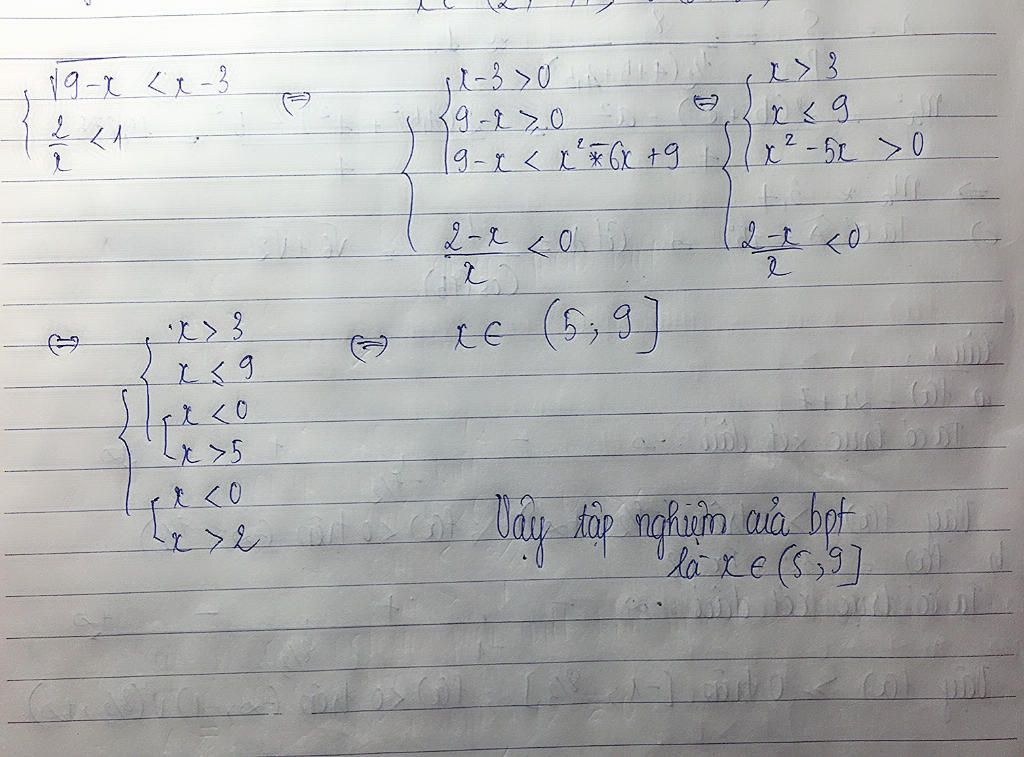 √9-x < x-3
2/x < 1
⇔
x-3 > 0
9-x ≥ 0
9-x < x² - 6x + 9
2-x/x < 0
⇔
x > 3
x ≤ 9
x² - 5x > 0
2-x/x < 0
⇔
x > 3
x ≤ 9
x < 0
x > 5
x < 0
x > 2
⇔ x ∈ (5; 9]
Vậy tập nghiệm của bpt
là x ∈ (5; 9]